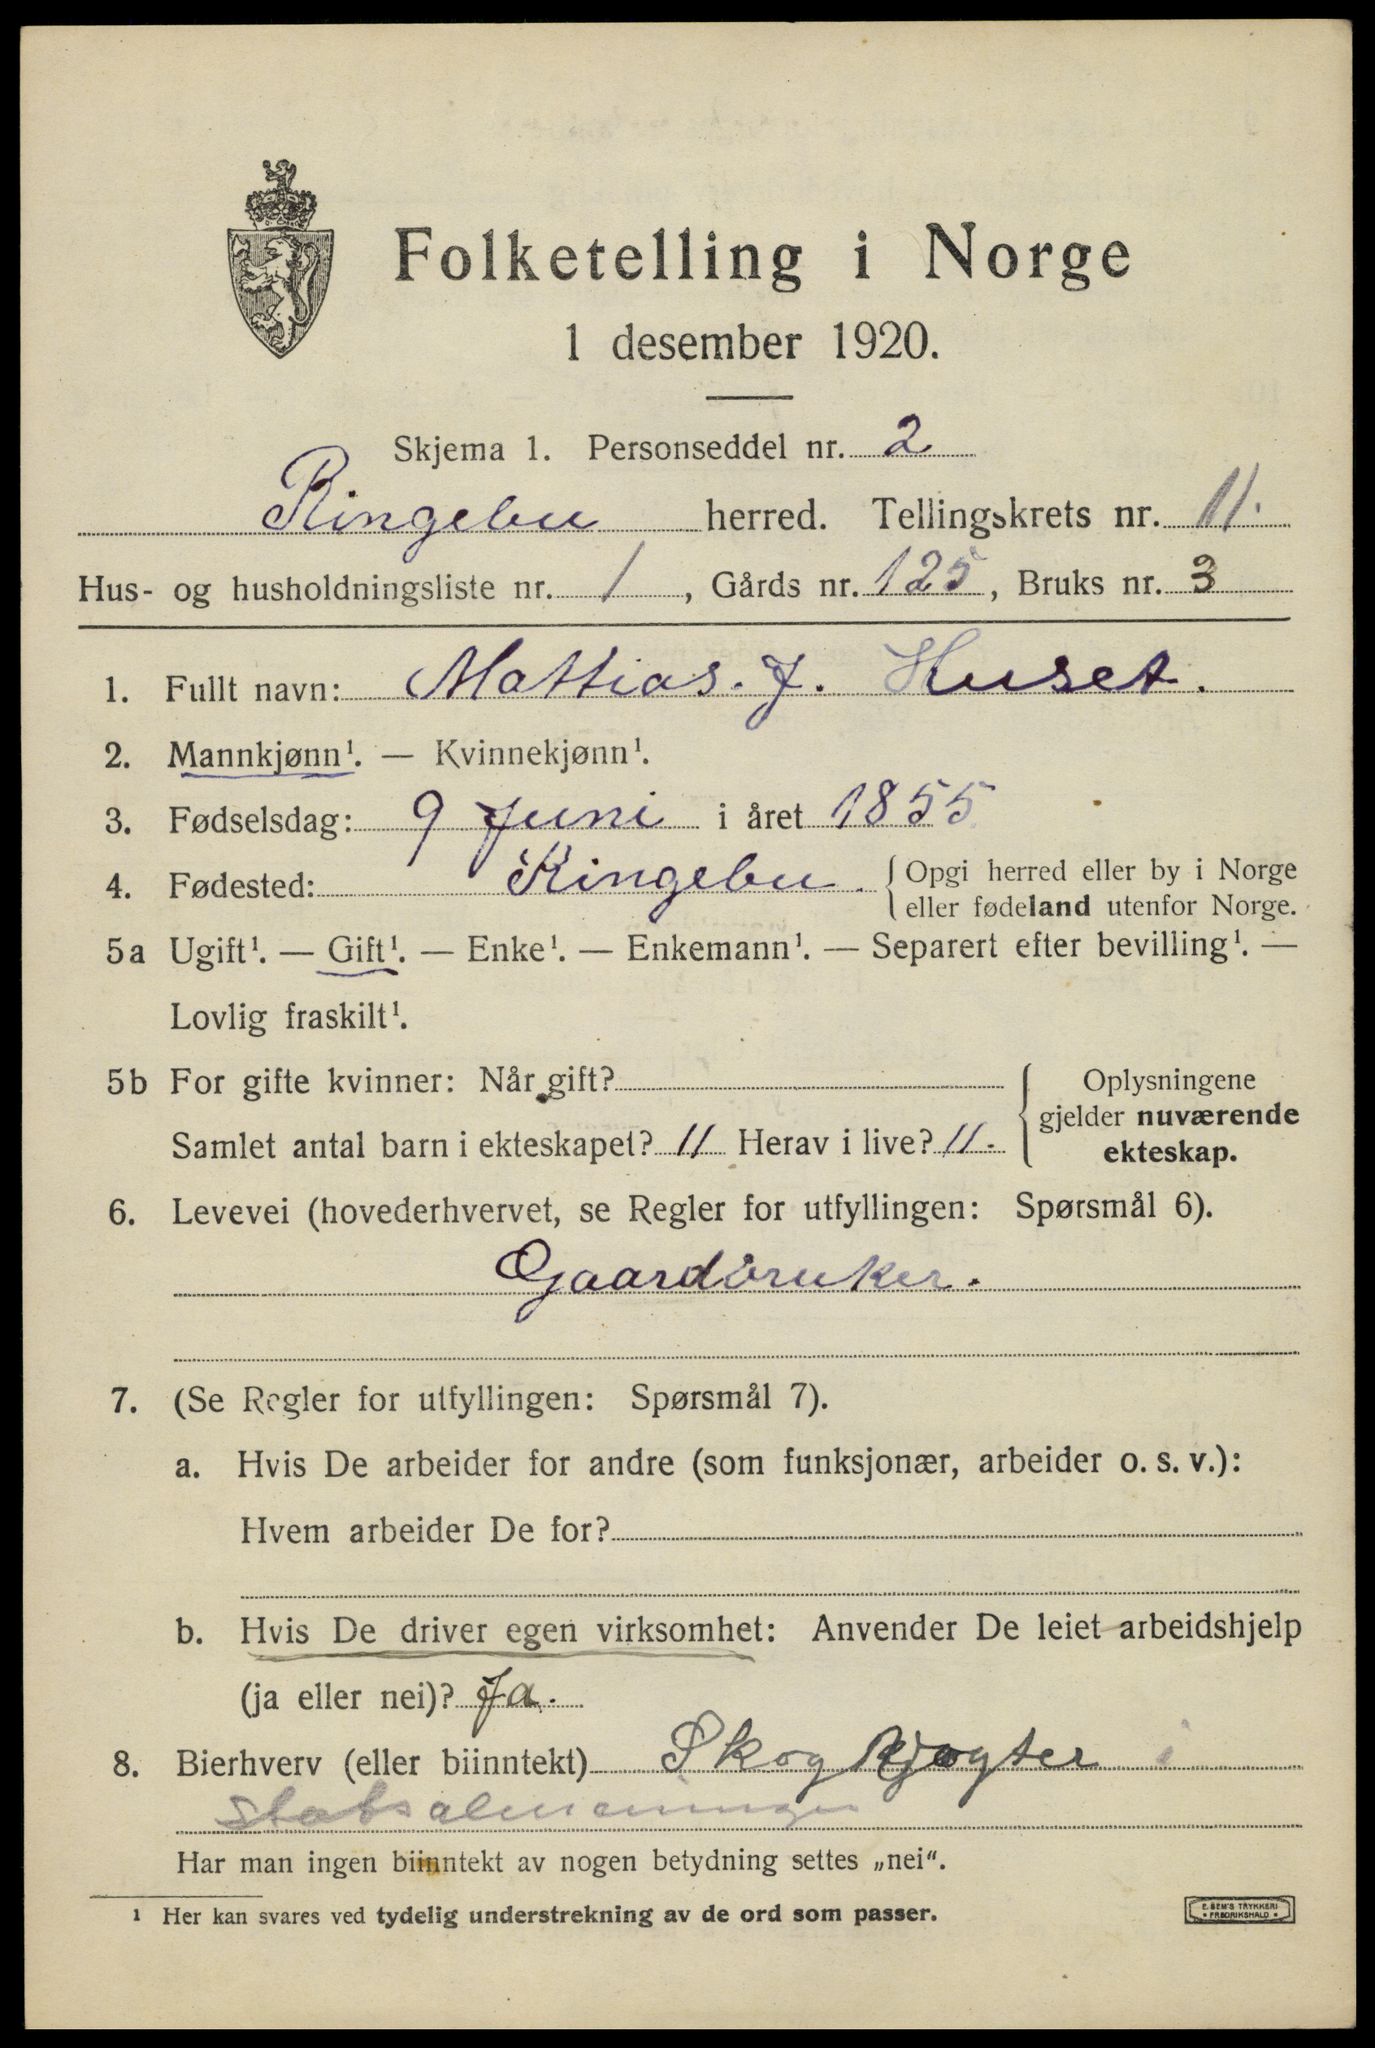 Folketelling i Norge
1 desember 1920.
Skjema 1. Personseddel nr. 2
Ringebu herred. Tellingskrets nr. 11.
Hus- og husholdningsliste nr. 1, Gårds nr. 125, Bruks nr. 3
1. Fullt navn: Mattias. J. Huset.
2. Mannkjønn¹. — Kvinnekjønn¹.
3. Fødselsdag: 9 Juni i året 1855
4. Fødested: Ringebu. { Opgi herred eller by i Norge
eller fødeland utenfor Norge.
5a Ugift¹. — Gift¹. — Enke¹. — Enkemann¹. — Separert efter bevilling¹. —
Lovlig fraskilt¹.
5b For gifte kvinner: Når gift? { Oplysningene
gjelder nuværende
Samlet antal barn i ekteskapet? 11 Herav i live? 11.
ekteskap.
6. Levevei (hovederhvervet, se Regler for utfyllingen: Spørsmål 6).
Gaardbruker.
7. (Se Regler for utfyllingen: Spørsmål 7).
a. Hvis De arbeider for andre (som funksjonær, arbeider o. s. v.):
Hvem arbeider De for?
b. Hvis De driver egen virksomhet: Anvender De leiet arbeidshjelp
(ja eller nei)? Ja.
8. Bierhverv (eller biinntekt) Skog i
statsalmenninger
Har man ingen biinntekt av nogen betydning settes „nei".
¹ Her kan svares ved tydelig understrekning av de ord som passer.
E. SEM'S TRYKKERI
* FREDRIKSHALD *